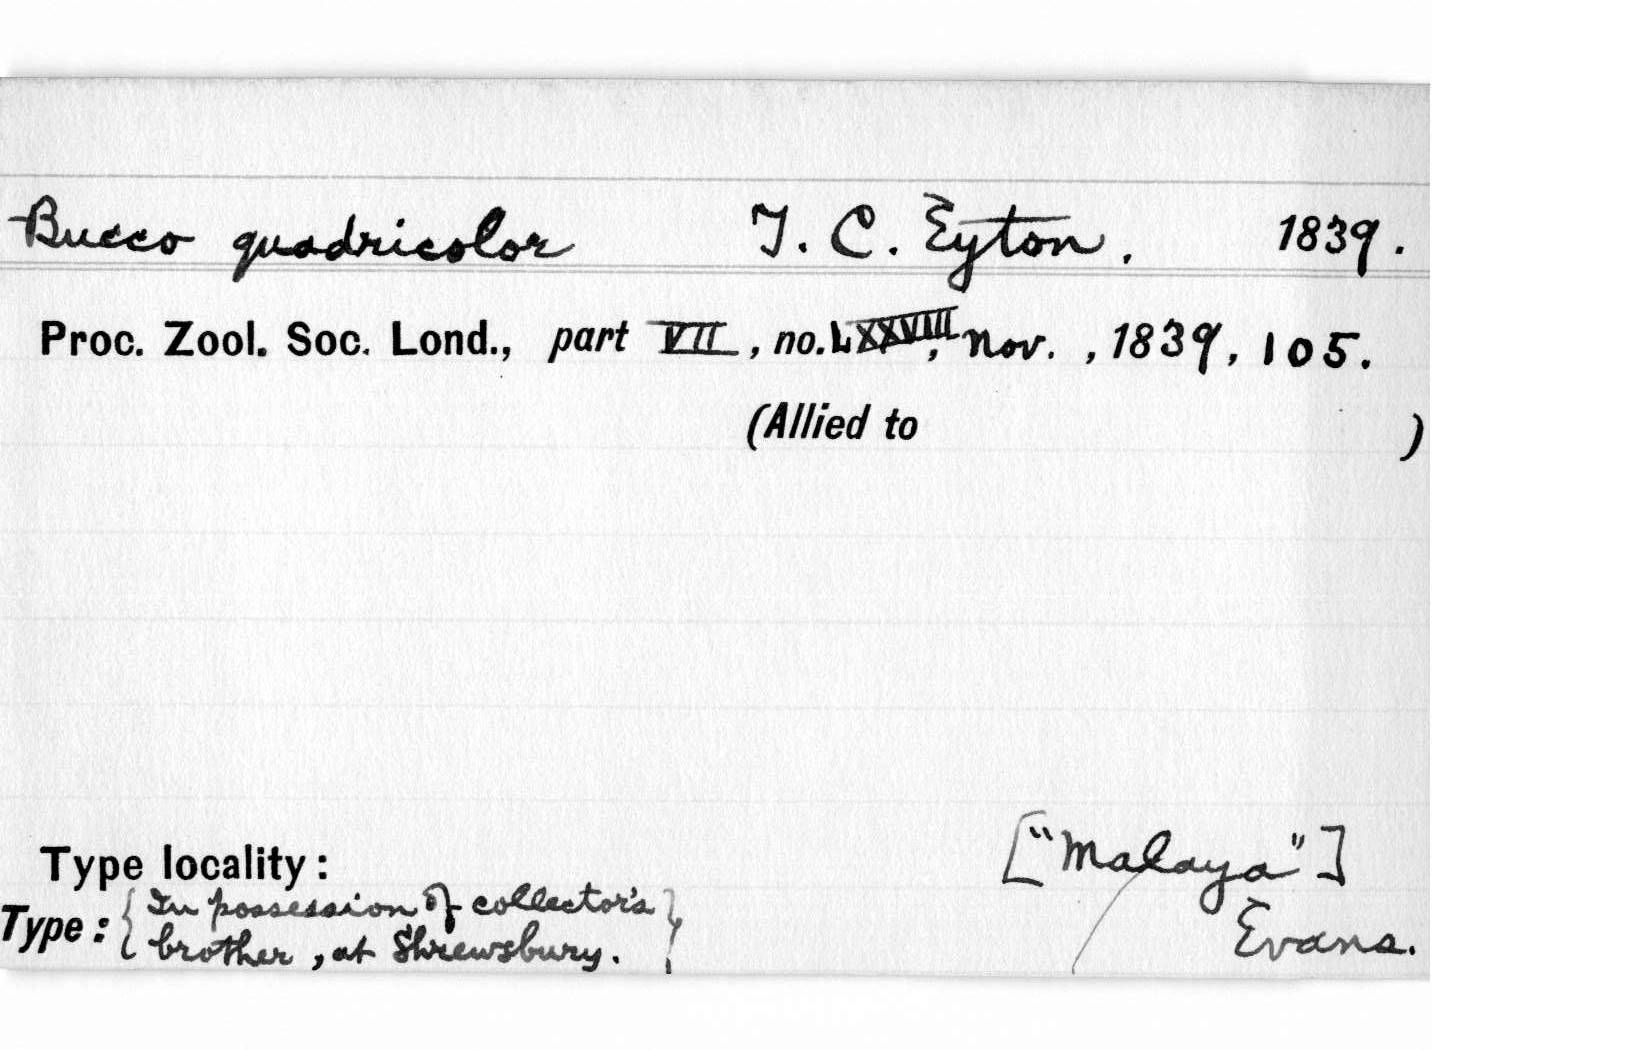 Bucco quadricolor T. C. Eyton. 1839.
Proc. Zool. Soc. Lond., part VII, no. LXXVIII, Nov., 1839, 105.
(Allied to )
Type locality: ["Malaya"]
Type: { In possession of collector's
brother, at Shrewsbury. } Evans.